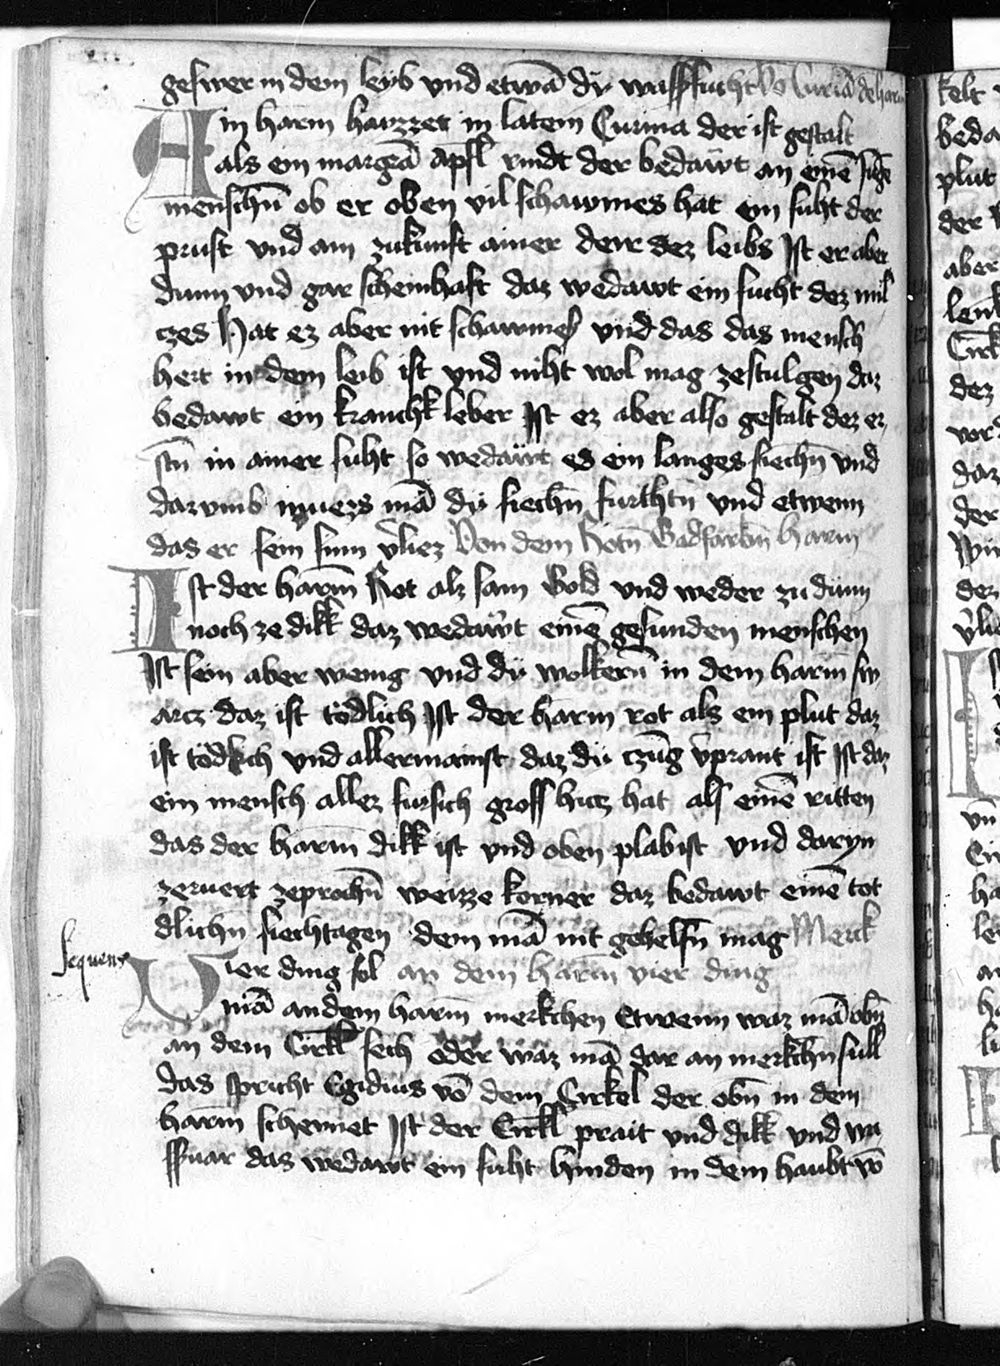 geswer in dem leyb vnd etwā dy wassersucht Vō Curia de harm
Ain harm haizzet in latein Curina der ist gestalt
als ein margrā apfl rindt der bedawt an einē siche
menschn̄ ob er oben vil schawmes hat ein suht der
prust vnd ain zukunft ainer derr dez leibs Ist er aber
dunn vnd gar scheinhaft daz wedawt ein sucht dez mil
czes Hat ez aber nit schawmes vnd das das mensch
hert in dem leib ist vnd niht wol mag zestulgen daz
bedawt ein kranchk leber Ist ez aber also gestalt dez er
stn̄ in ainer suht so wedawt es ein langes siechn̄ vnd
darvmb muezs mā dy siechn̄ furchtn̄ vnd etwenn
das er sein sinn v̄liez Von dem Rotn̄ Goldfarbn̄ harm
Ist der harm̄ Rot alz sam Gold vnd weder zu dunn
noch ze dikk daz wedawt einē gesunden menschen
Ist sein aber wenig vnd dy wolkern̄ in dem harm̄ sw
arcz daz ist tödlich Ist der harm rot als ein plut daz
ist tödlich vnd allermainst daz dy czūg v̄prant ist Ist daz
ein mensch allez fursich gross hicz hat als einē ritten
das der harm̄ dikk ist vnd oben plab ist vnd daryn
zeruert zeprochn̄ weizze korner daz bedawt einē tot
dlichn̄ siechtagen dem mā nit gehelfn̄ mag Merck
Sequens
Vier ding sol an dem harm̄ vier ding
mā an dem harm̄ merkchen Etwenn waz mā obn̄
an dem Cirkl sech oder waz mā dar an merkchn̄ sull
das spricht Egidius vō dem Cirkel der obn̄ in dem
harm̄ scheinet Ist der Cirkl prait vnd dikk vnd wa
ssuar das wedawt ein suht hinden in dem haubt vō